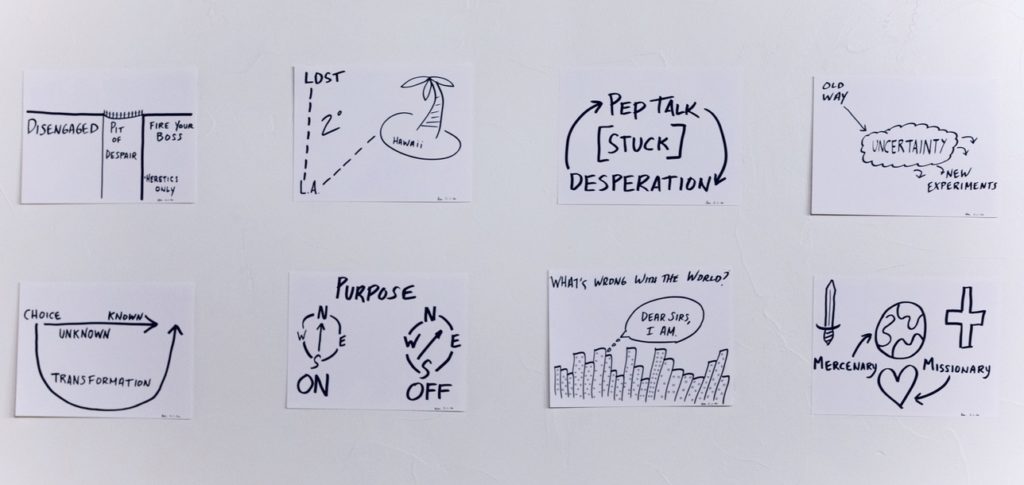 DISENGAGED
PIT
OF
DESPAIR
FIRE YOUR
BOSS
HERETICS
ONLY
LOST
2°
HAWAII
L.A.
PEP TALK
[STUCK]
DESPERATION
OLD
WAY
UNCERTAINTY
NEW
EXPERIMENTS
CHOICE
KNOWN
UNKNOWN
TRANSFORMATION
PURPOSE
N
W
E
S
ON
N
W
E
S
OFF
WHAT'S WRONG WITH THE WORLD?
DEAR SIRS,
I AM.
MERCENARY
MISSIONARY